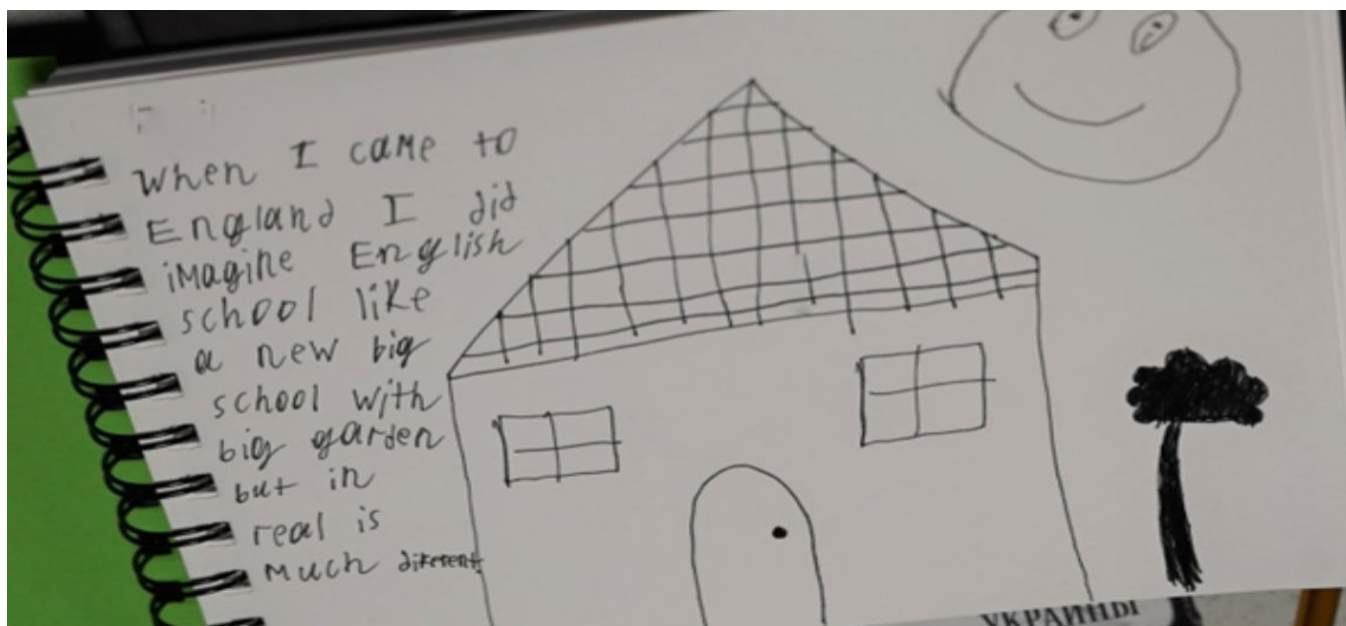 When I came to
England I did
iMagine English
school like
a new big
school with
big garden
but in
real is
Much diferent
УКРАИНЫ